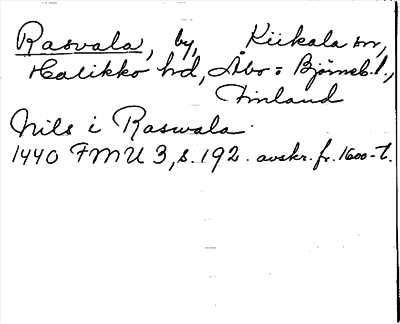 Rasvala, by, Kiikala sn,
Halikko hd, Åbo = Björneb. l.,
Finland
Nils i Raswala.
1440 FMU 3, s. 192. avskr. fr. 1600-t.